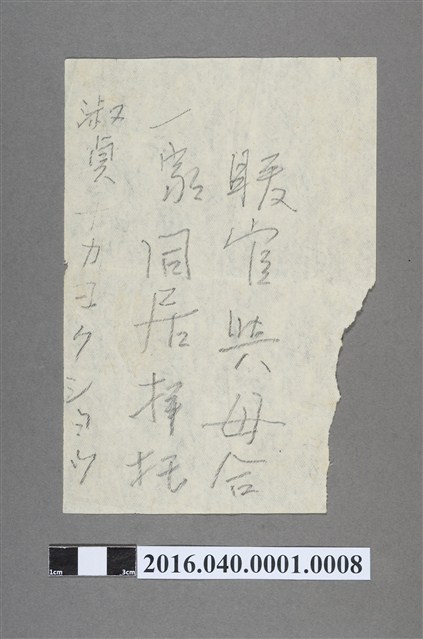 暖官與母合
一家同居拜托
淑貞ナカヨクショウ
1cm 3cm
2016.040.0001.0008